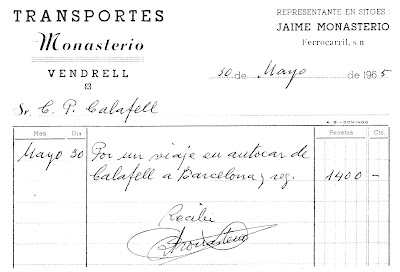 TRANSPORTES
Monasterio
VENDRELL
REPRESENTANTE EN SITGES:
JAIME MONASTERIO
Ferrocarril, s/n
30 de Mayo de 1965
Sr. C. P. Calafell
Mes Dia Pesetas Cts.
Mayo 30 Por un viaje en autocar de
Calafell a Barcelona y reg. 1400 —
Recibi
Monasterio